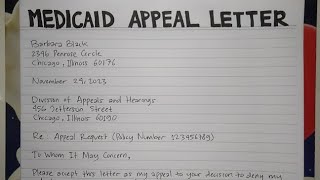 MEDICAID APPEAL LETTER
Barbara Black
2396 Penrose Circle
Chicago, Illinois 60176
November 29, 2023
Division of Appeals and Hearings
456 Jefferson Street
Chicago, Illinois 60190
Re: Appeal Request (Policy Number 123456789)
To Whom It May Concern,
Please accept this letter as my appeal to your decision to deny my